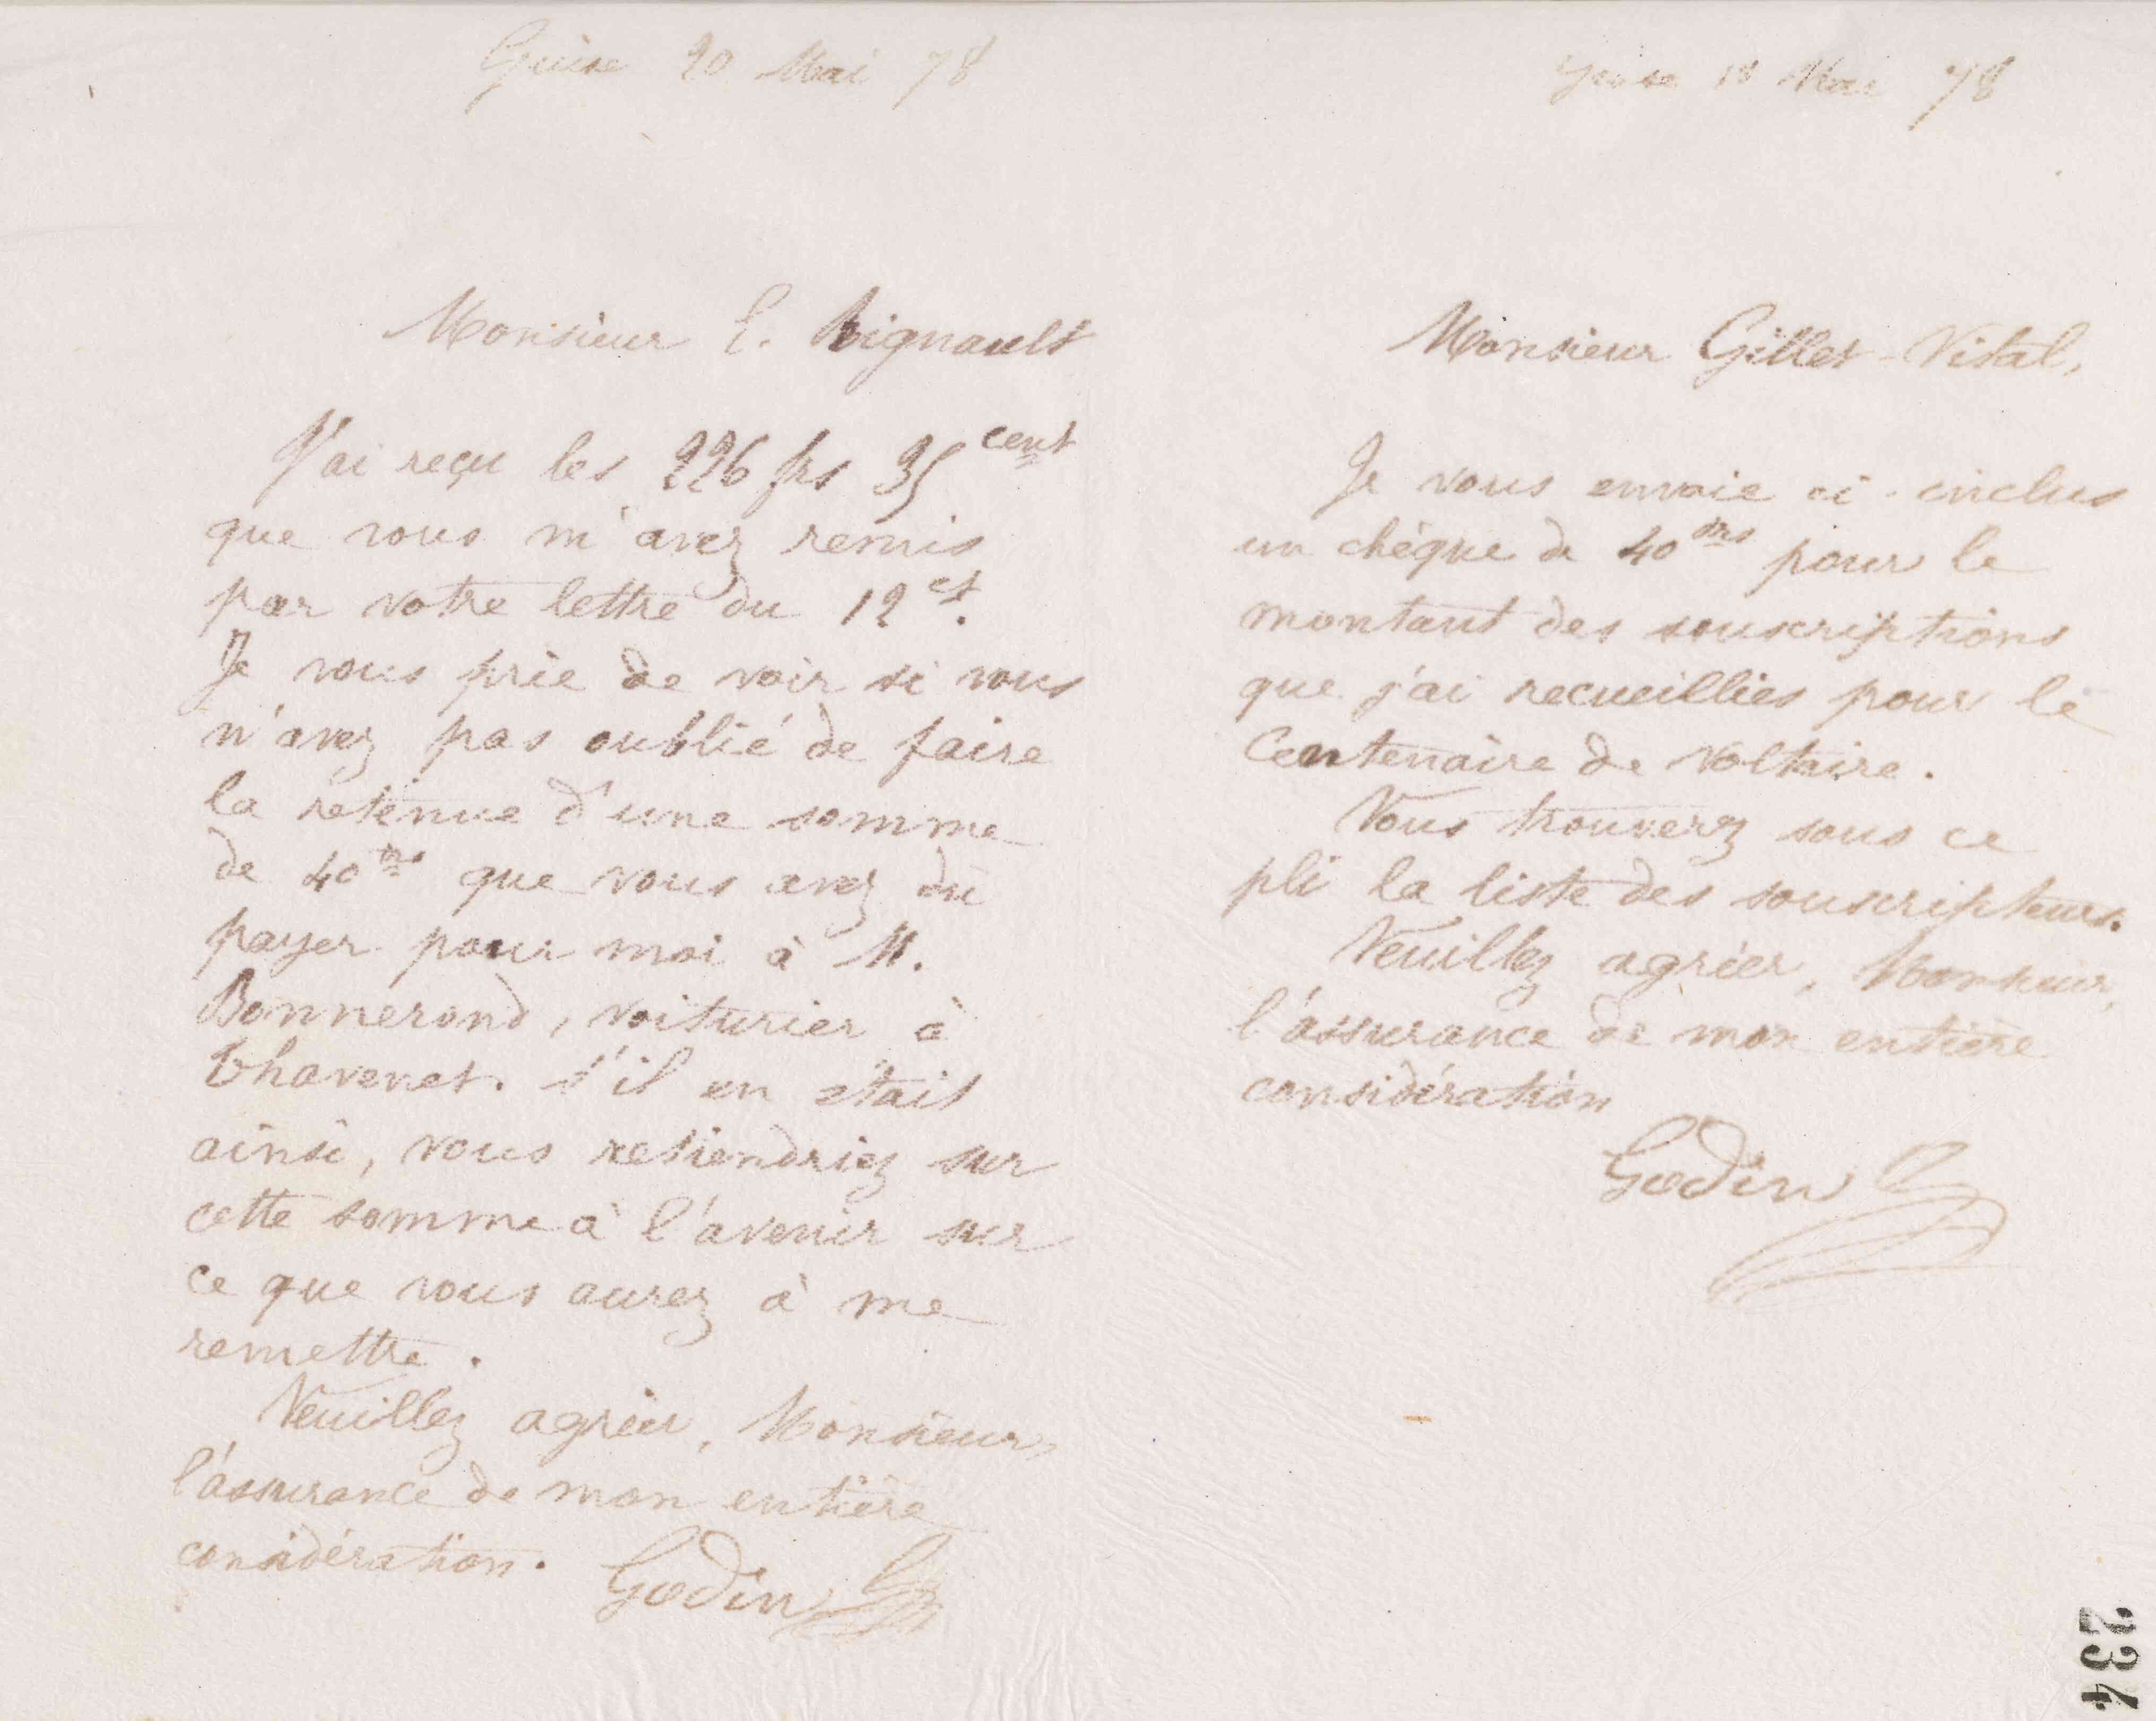 Guise 20 Mai 78
Monsieur E. Rignault
J'ai reçu les 226 frs 35 cent
que vous m'avez remis
par votre lettre du 12 ct.
Je vous prie de voir si vous
n'avez pas oublié de faire
la retenue d'une somme
de 40 frs que vous avez dû
payer pour moi à M.
Bonnerond, voiturier à
Thavenet. S'il en était
ainsi, vous retiendriez sur
cette somme à l'avenir sur
ce que vous aurez à me
remettre.
Veuillez agréer, Monsieur,
l'assurance de mon entière
considération.
Godin
Guise Mai 78
Monsieur Gillet-Vital,
Je vous envoie ci-inclus
un chèque de 40 frs pour le
montant des souscriptions
que j'ai recueillies pour le
Centenaire de Voltaire.
Vous trouverez sous ce
pli la liste des souscripteurs.
Veuillez agréer, Monsieur,
l'assurance de mon entière
considération
Godin
234